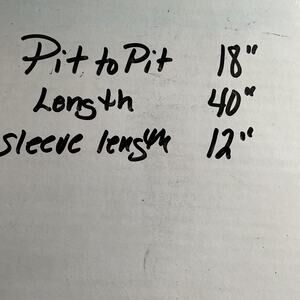 Pit to Pit 18"
Length 40"
sleeve length 12"